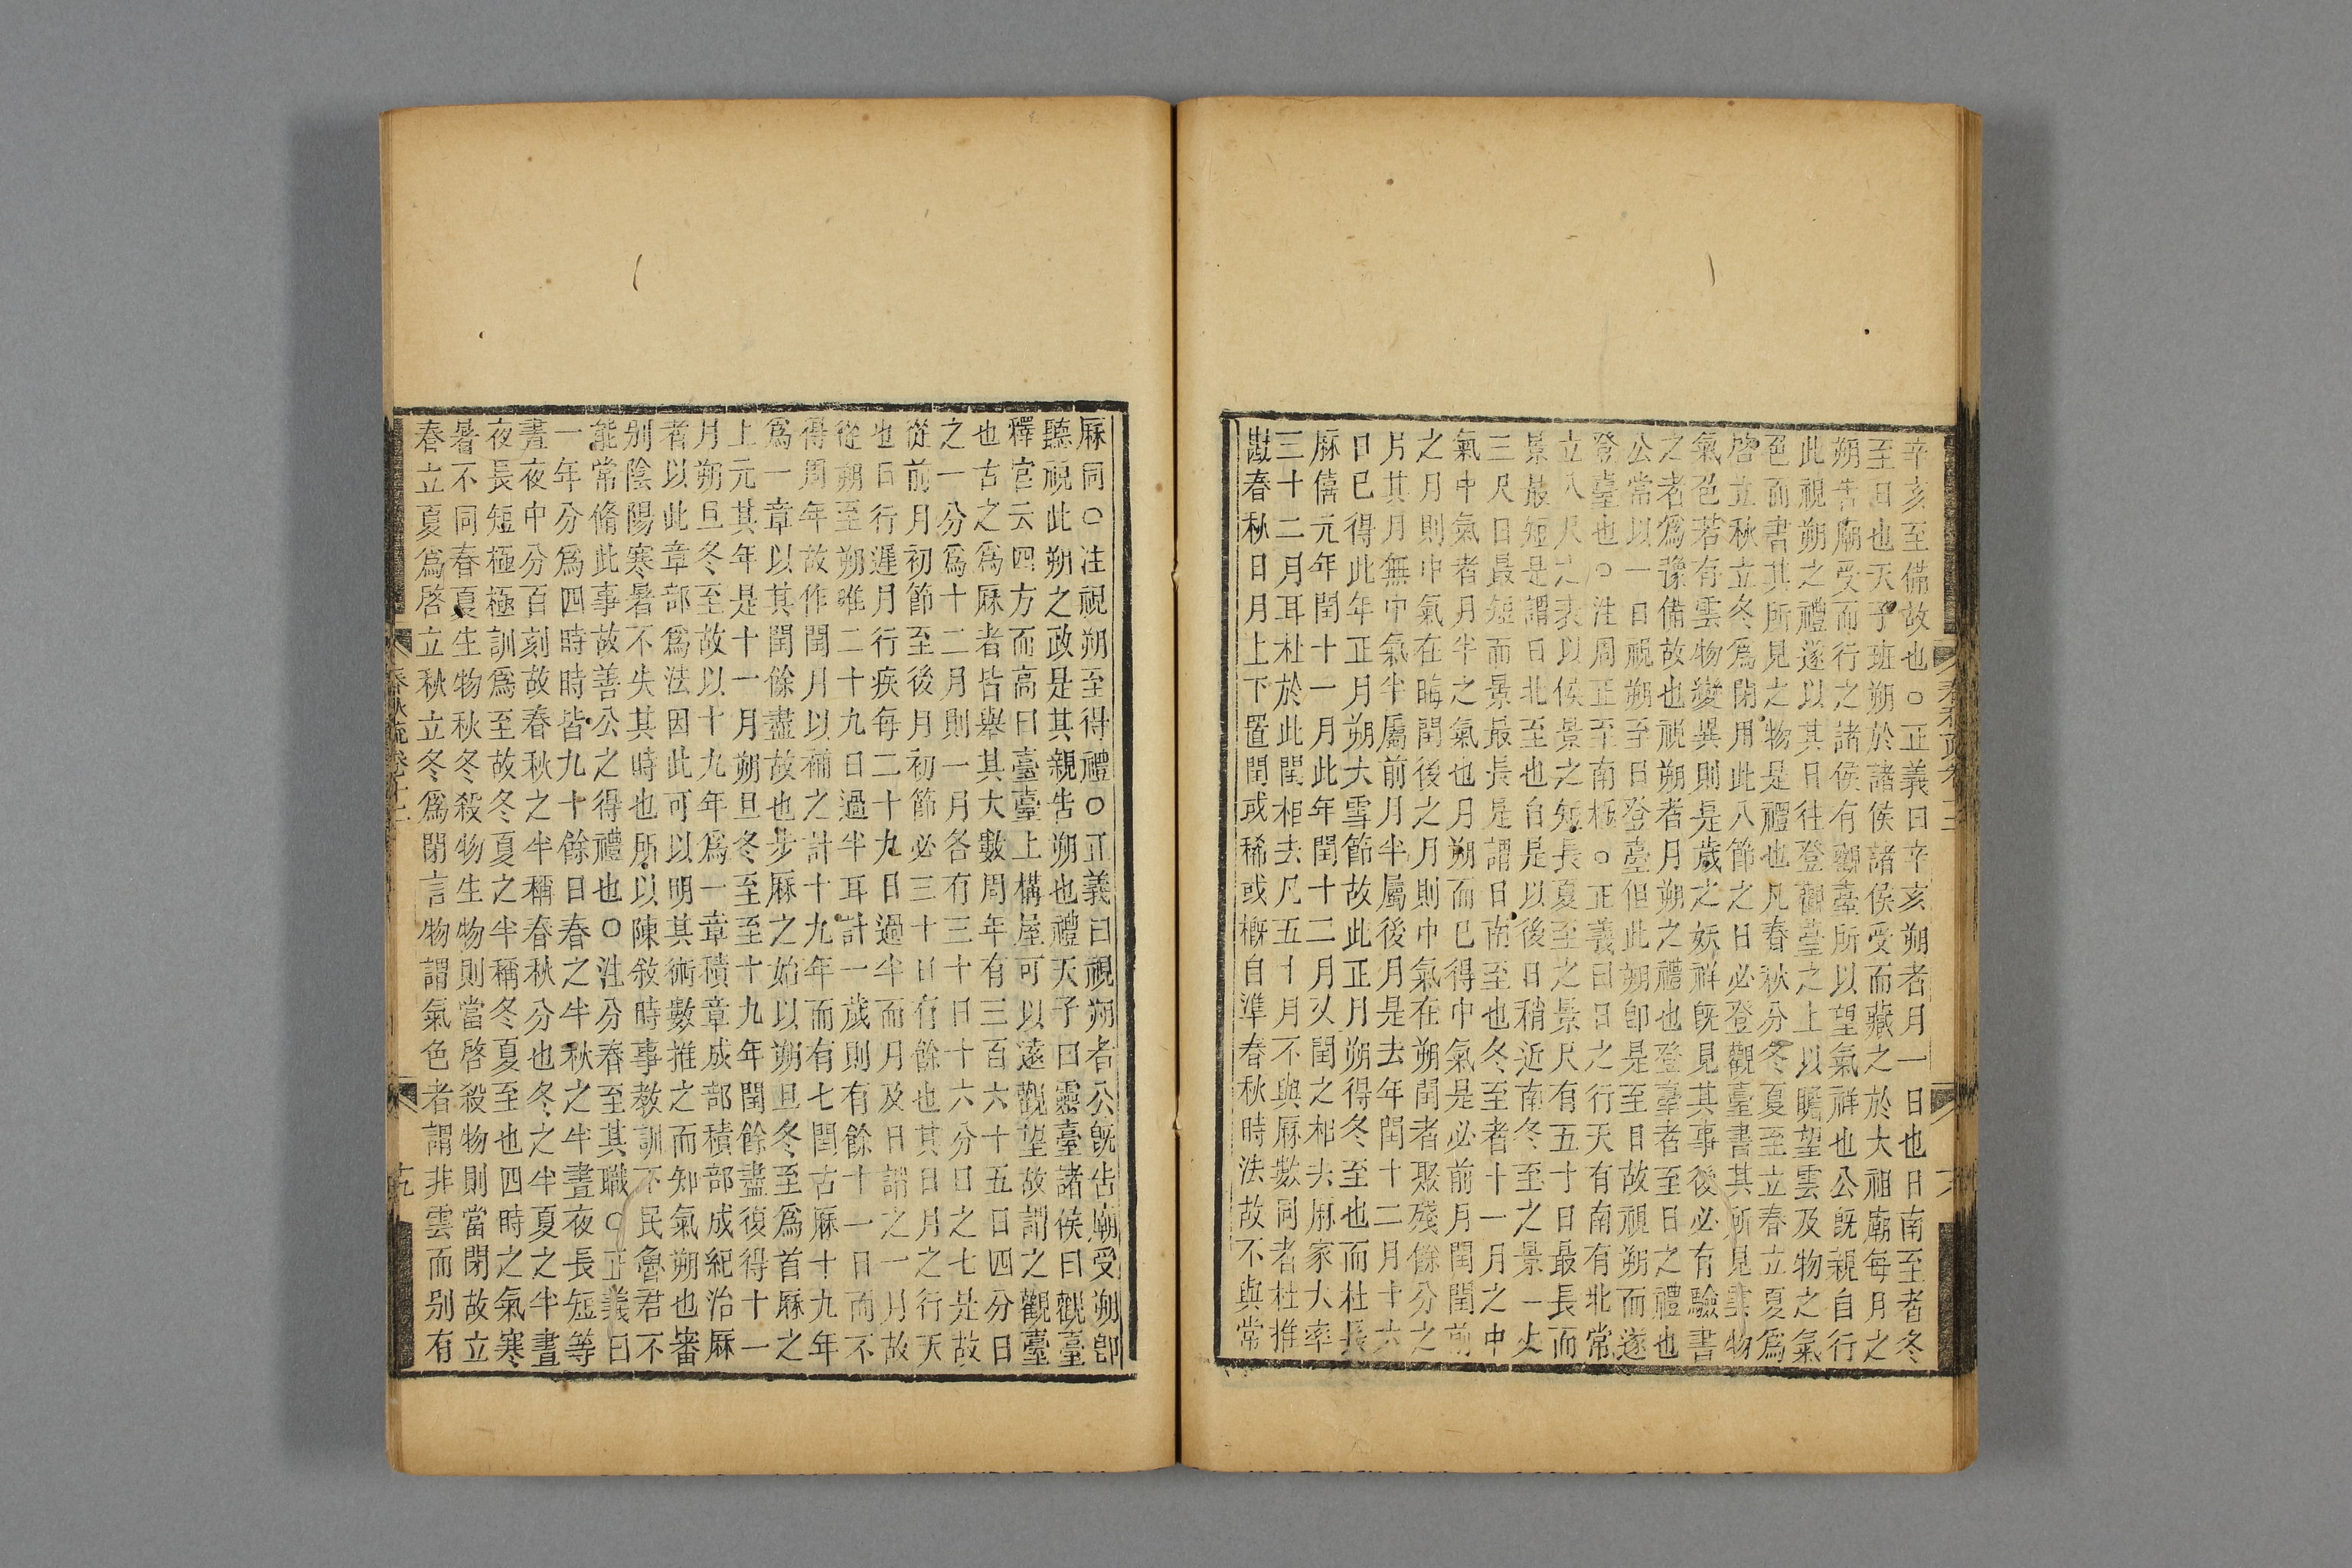 辛亥至備故也○正義曰辛亥朔者月一日也日南至者冬
至日也天子班朔於諸侯諸侯受而藏之於大祖廟每月之
朔告廟受而行之諸侯有觀臺所以望氣祥也公旣親自行
此視朔之禮遂以其日往登觀臺之上以瞻望雲及物之氣
色而書其所見之物是禮也凡春秋分冬夏至立春立夏爲
啓立秋立冬爲閉用此八節之日必登觀臺書其所見雲物
氣色若有雲物變異則是歲之妖祥旣見其事後必有驗書
之者爲豫備故也視朔者月朔之禮也登臺者至日之禮也
公常以一日視朔至日登臺但此朔卽是至日故視朔而遂
登臺也○注周正至南極○正義曰日之行天有南有北常
立八尺之表以候景之短長夏至之景尺有五寸日最長而
景最短是謂日北至也自是以後日稍近南冬至之景一丈
三尺日最短而景最長是謂日南至也冬至者十一月之中
氣中氣者月半之氣也月朔而已得中氣是必前月閏閏前
之月則中氣在晦閏後之月則中氣在朔閏者聚殘餘分之
月其月無中氣半屬前月半屬後月是去年閏十二月十六
日已得此年正月朔大雪節故此正月朔得冬至也而杜長
厤僖元年閏十一月此年閏十二月又閏之相去厤家大率
三十二月耳杜於此閏相去凡五十月不與厤數同者杜推
勘春秋日月上下置閏或稀或槪自準春秋時法故不與常
厤同○注視朔至得禮○正義曰視朔者公旣告廟受朔卽
聽視此朔之政是其親告朔也禮天子曰靈臺諸侯曰觀臺
釋宮云四方而高曰臺臺上構屋可以遠觀望故謂之觀臺
也古之爲厤者皆舉其大數周年有三百六十五日四分日
之一分爲十二月則一月各有三十日十六分日之七是故
從前月初節至後月初節必三十日有餘也其日月之行天
也日行遲月行疾每二十九日過半而月及日謂之一月故
從朔至朔唯二十九日過半耳計一歲則有餘十一日而不
得周年故作閏月以補之計十九年而有七閏古厤十九年
爲一章以其閏餘盡故也步厤之始以朔旦冬至爲首厤之
上元其年是十一月朔旦冬至至十九年閏餘盡復得十一
月朔旦冬至故以十九年爲一章積章成部積部成紀治厤
者以此章部爲法因此可以明其術數推之而知氣朔也審
别陰陽寒暑不失其時也所以陳敘時事敎訓不民魯君不
能常脩此事故善公之得禮也○注分春至其職○正義曰
一年分爲四時時皆九十餘日春之半秋之半晝夜長短等
晝夜中分百刻故春秋之半稱春秋分也冬之半夏之半晝
夜長短極極訓爲至故冬夏之半稱冬夏至也四時之氣寒
暑不同春夏生物秋冬殺物生物則當啓殺物則當閉故立
春立夏爲啓立秋立冬爲閉言物謂氣色者謂非雲而别有
春秋疏卷十二